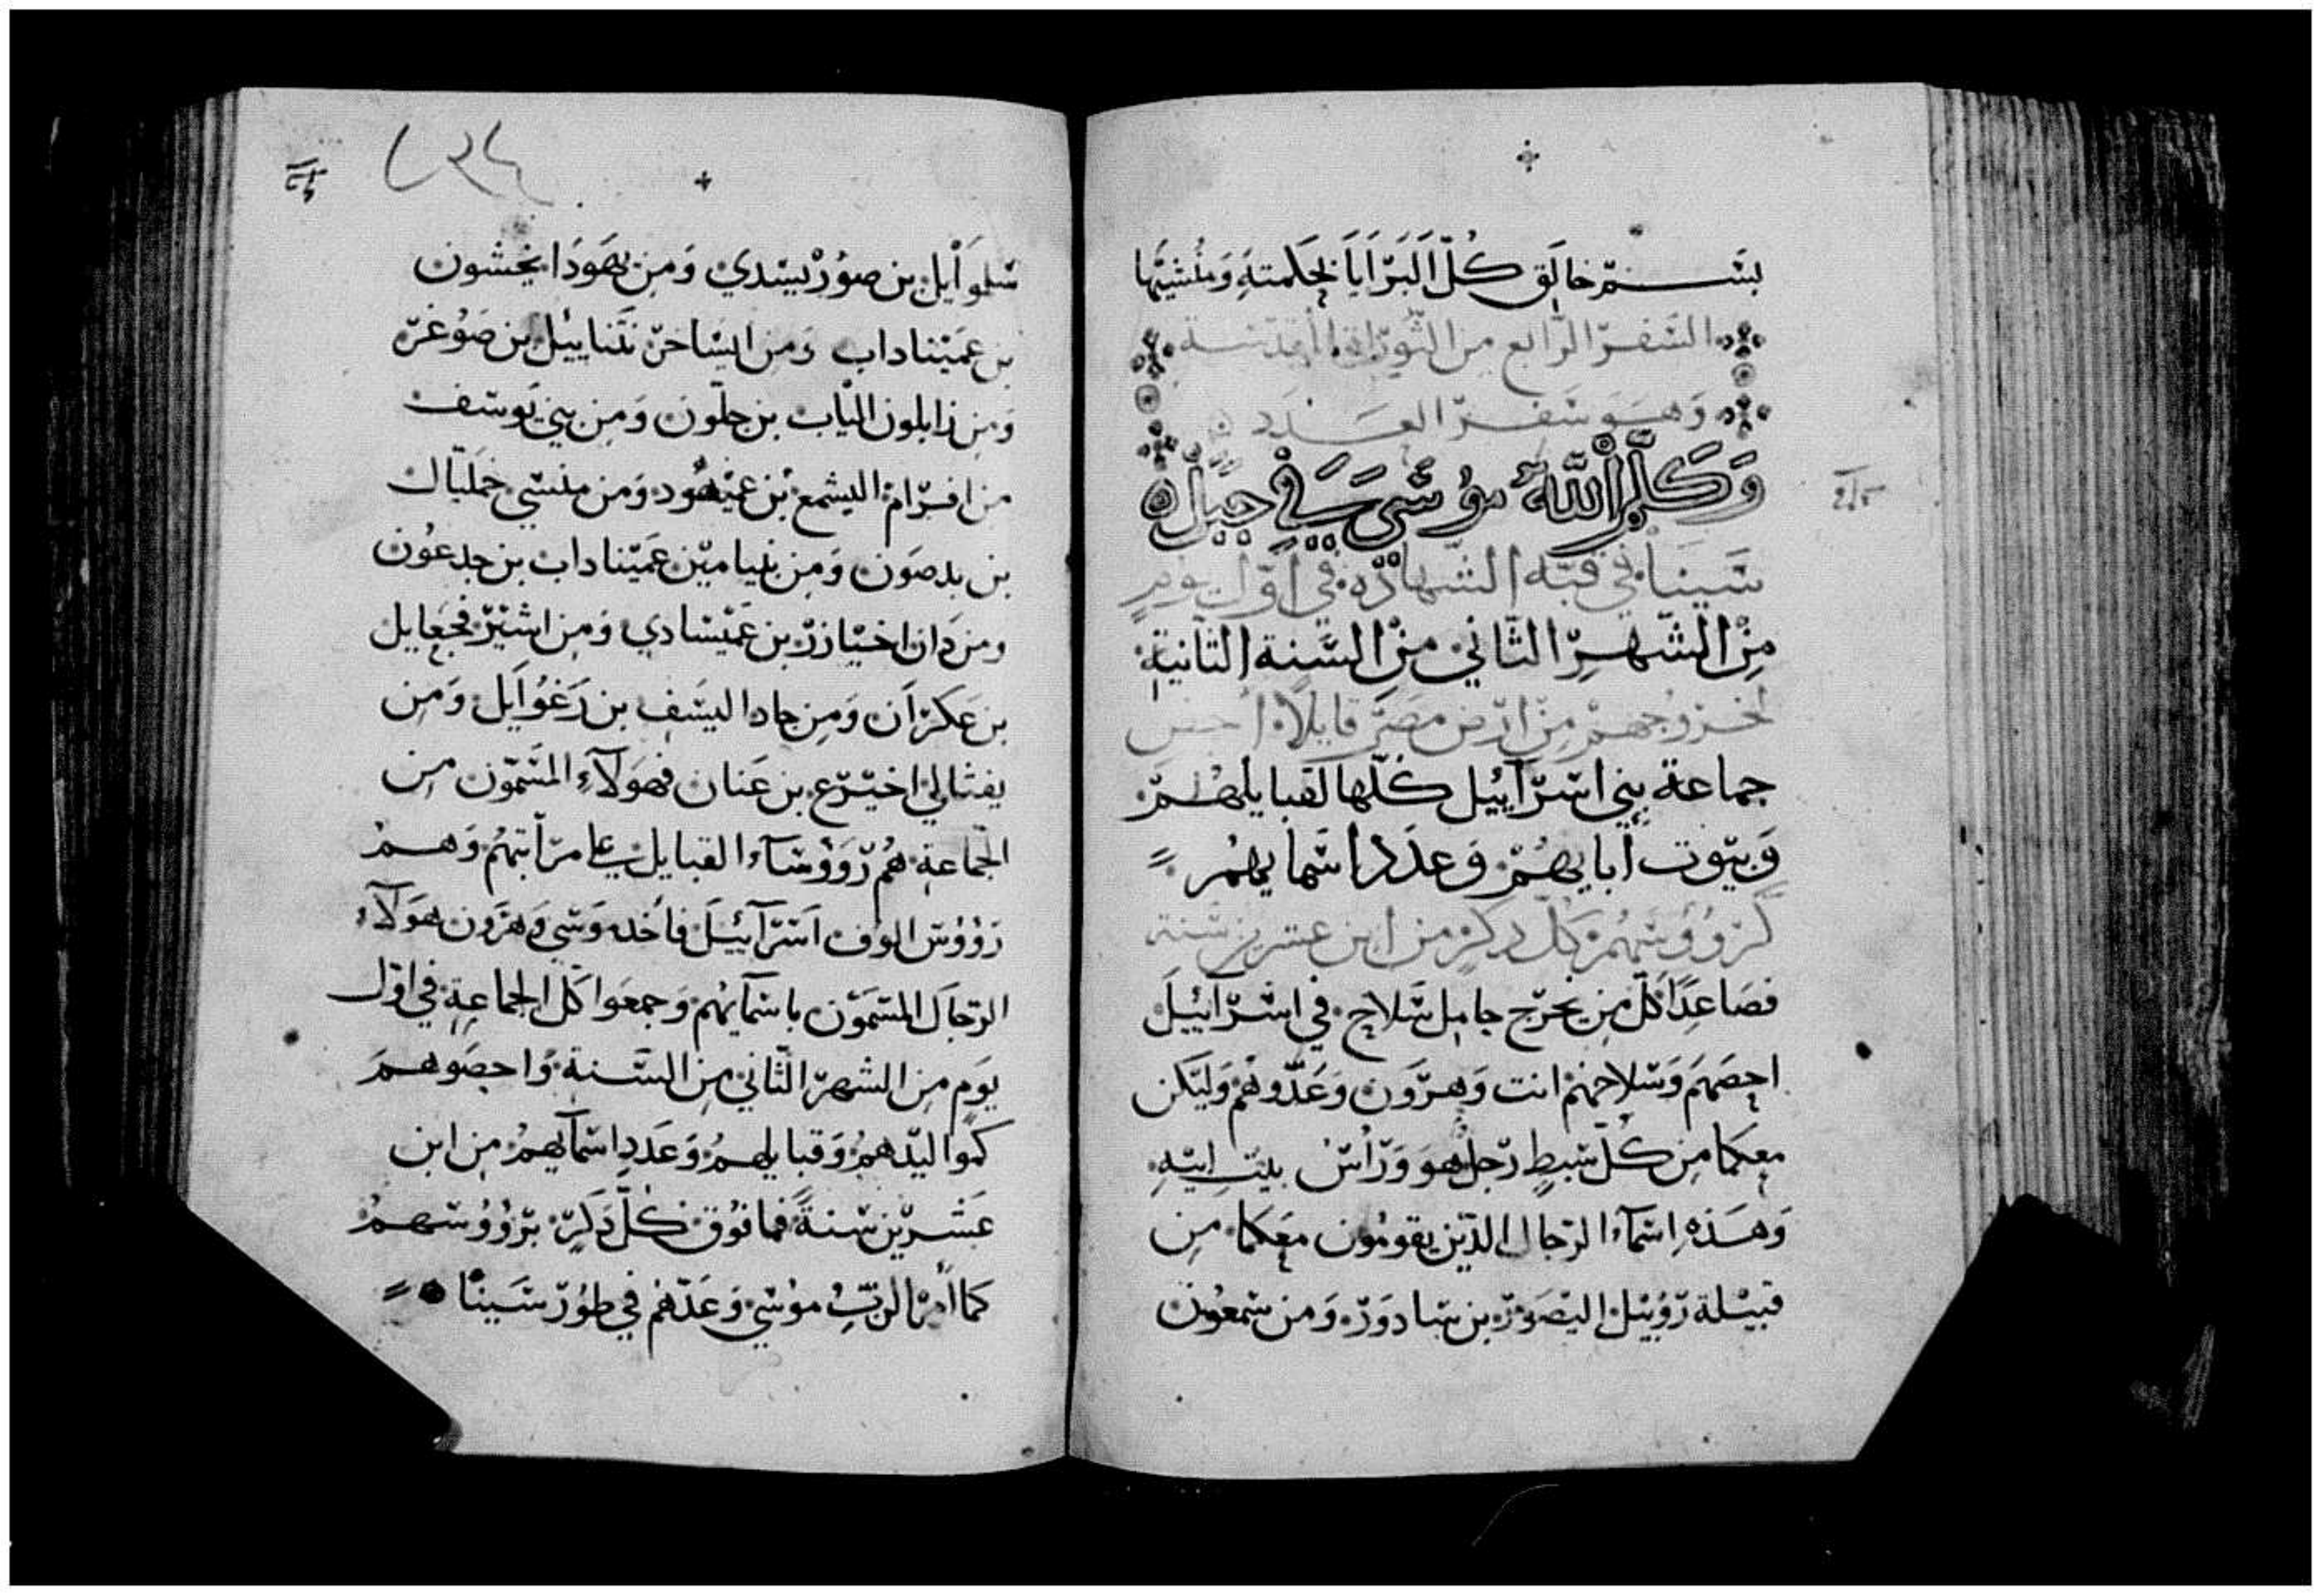 بسم خالق كل البرايا بحكمته ومنشيها
السفر الرابع من التوراة المقدسة
وهو سفر العدد
وَكَلَّمَ اللَّهُ مُوسَى فِي جَبَل
سينا في قبة الشهادة في اول يوم
من الشهر الثاني من السنة الثانية
لخروجهم من ارض مصر قايلا احص
جماعة بني اسرآئيل كلها لقبايلهم
وبيوت ابايهم وعدد اسمايهم
كرووسهم كل دكر من ابن عشرين سنة
فصاعدا كل من يخرج حامل سلاح في اسرآئيل
احصهم وسلاحهم انت وهرون وعدوهم وليكن
معكما من كل سبط رجل هو وراس بيت ابيه
وهذه اسماء الرجال الذين يقومون معكما من
قبيلة روبيل اليصور بن سادور ومن شمعون
سلوايل بن صوريسدي ومن يهودا نحشون
بن عميناداب ومن ايساخر نتناييل بن صوغر
ومن زابلون الياب بن حلون ومن بني يوسف
من افرام اليشمع بن عميهود ومن منسي جمليال
بن بدصون ومن بنيامين عميناداب بن جدعون
ومن دان اخيازر بن عميسادي ومن اشير فجعايل
بن عكران ومن جاد اليسف بن رغوايل ومن
يفثالي اخيرع بن عنان فهولآء المسمون من
الجماعة هم روؤسآء القبايل على مراتبهم وهم
رؤوس الوف اسرآئيل فاخد موسي وهرون هولآء
الرجال المسمون باسمآيهم وجمعوا كل الجماعة في اول
يوم من الشهر الثاني من السنة واحصوهم
كمواليدهم وقبايلهم وعدد اسمآيهم من ابن
عشرين سنة فما فوق كل دكر برووسهم
كما امر الرب موسي وعدهم في طور سينا